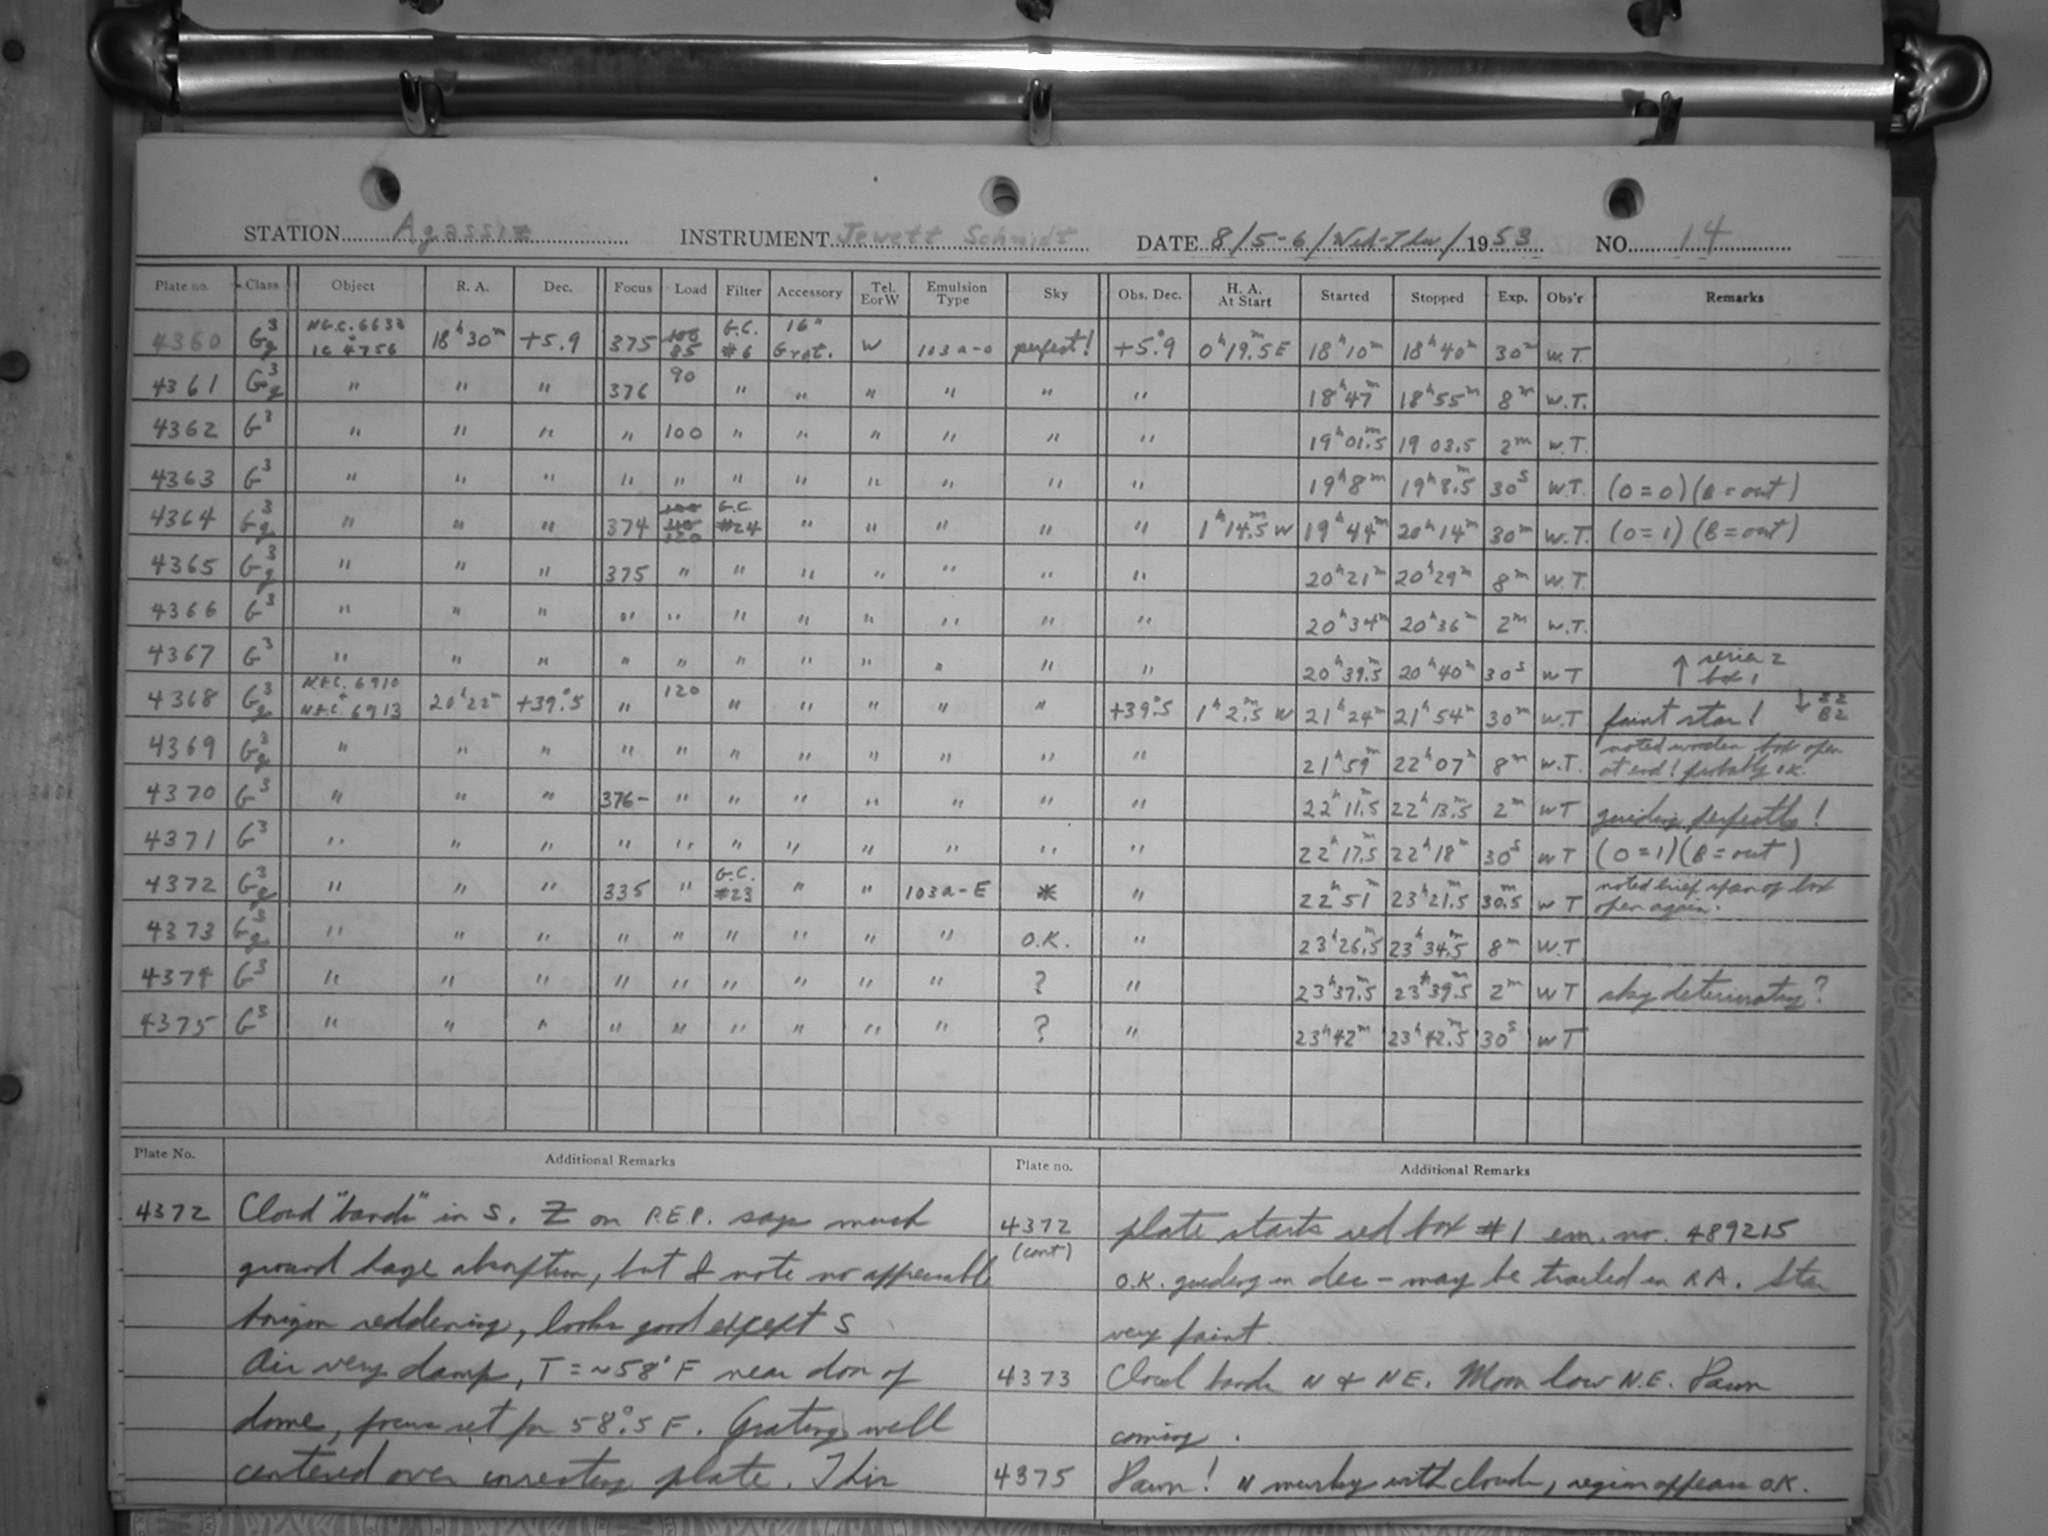 STATION Agassiz INSTRUMENT Jewett Schmidt DATE 8/5-6/Wed-Thu/1953 NO. 14
Plate no. Class Object R. A. Dec. Focus Load Filter Accessory Tel. E or W Emulsion Type Sky Obs. Dec. H. A. At Start Started Stopped Exp. Obs'r Remarks
4360 G³g N.G.C. 6633 + IC 4756 18ʰ30ᵐ +5.9 375 100 85 G.C. #6 16" Grat. W 103a-o perfect! +5°.9 0ʰ19ᵐ.5E 18ʰ10ᵐ 18ʰ40ᵐ 30ᵐ W.T.
4361 G³g " " " 376 90 " " " " " " 18ʰ47ᵐ 18ʰ55ᵐ 8ᵐ W.T.
4362 G³ " " " " 100 " " " " " " 19ʰ01ᵐ.5 19 03.5 2ᵐ W.T.
4363 G³ " " " " " " " " " " " 19ʰ8ᵐ 19ʰ8ᵐ.5 30ˢ W.T. (O=0)(B=out)
4364 G³g " " " 374 100 110 120 G.C #24 " " " " " 1ʰ14ᵐ.5 W 19ʰ44ᵐ 20ʰ14ᵐ 30ᵐ W.T. (O=1)(B=out)
4365 G³g " " " 375 " " " " " " " 20ʰ21ᵐ 20ʰ29ᵐ 8ᵐ W.T.
4366 G³ " " " " " " " " " " " 20ʰ34ᵐ 20ʰ36ᵐ 2ᵐ W.T.
4367 G³ " " " " " " " " " " " 20ʰ39ᵐ.5 20ʰ40ᵐ 30ˢ WT ↑ series 2 box 1
4368 G³g N.G.C. 6910 + N.G.C. 6913 20ʰ22ᵐ +39°.5 " 120 " " " " " +39°.5 1ʰ2ᵐ.5 W 21ʰ24ᵐ 21ʰ54ᵐ 30ᵐ W.T faint star! ↓ B2
4369 G³g " " " " " " " " " " " 21ʰ59ᵐ 22ʰ07ᵐ 8ᵐ W.T. noted wooden box open at end! probably o.k.
4370 G³ " " " 376- " " " " " " " 22ʰ11ᵐ.5 22ʰ13ᵐ.5 2ᵐ WT guiding perfectly!
4371 G³ " " " " " " " " " " " 22ʰ17ᵐ.5 22ʰ18ᵐ 30ˢ WT (O=1)(B=out)
4372 G³g " " " 335 " G.C. #23 " " 103a-E * " 22ʰ51ᵐ 23ʰ21ᵐ.5 30ᵐ.5 WT noted brief span of box open again.
4373 G³g " " " " " " " " " O.K. " 23ʰ26ᵐ.5 23ʰ34ᵐ.5 8ᵐ W.T
4374 G³ " " " " " " " " " ? " 23ʰ37ᵐ.5 23ʰ39ᵐ.5 2ᵐ WT sky deteriorating?
4375 G³ " " " " " " " " " ? " 23ʰ42ᵐ 23ʰ42ᵐ.5 30ˢ WT
Plate No. Additional Remarks
4372 Cloud "bands" in S. Z on P.E.P. says much
ground haze absorption, but I note no appreciable
horizon reddening, looks good except S
Air very damp, T = ~58° F near door of
dome, focus set for 58°.5 F. Grating well
centered over correcting plate. This
Plate no. Additional Remarks
4372 (cont) plate starts red box #1 em. no. 489215
O.K. guiding in dec - may be trailed in R.A. Star
very faint.
4373 Cloud bands N & NE. Moon low N.E. Dawn
coming.
4375 Dawn! N murky with clouds, region appears O.K.